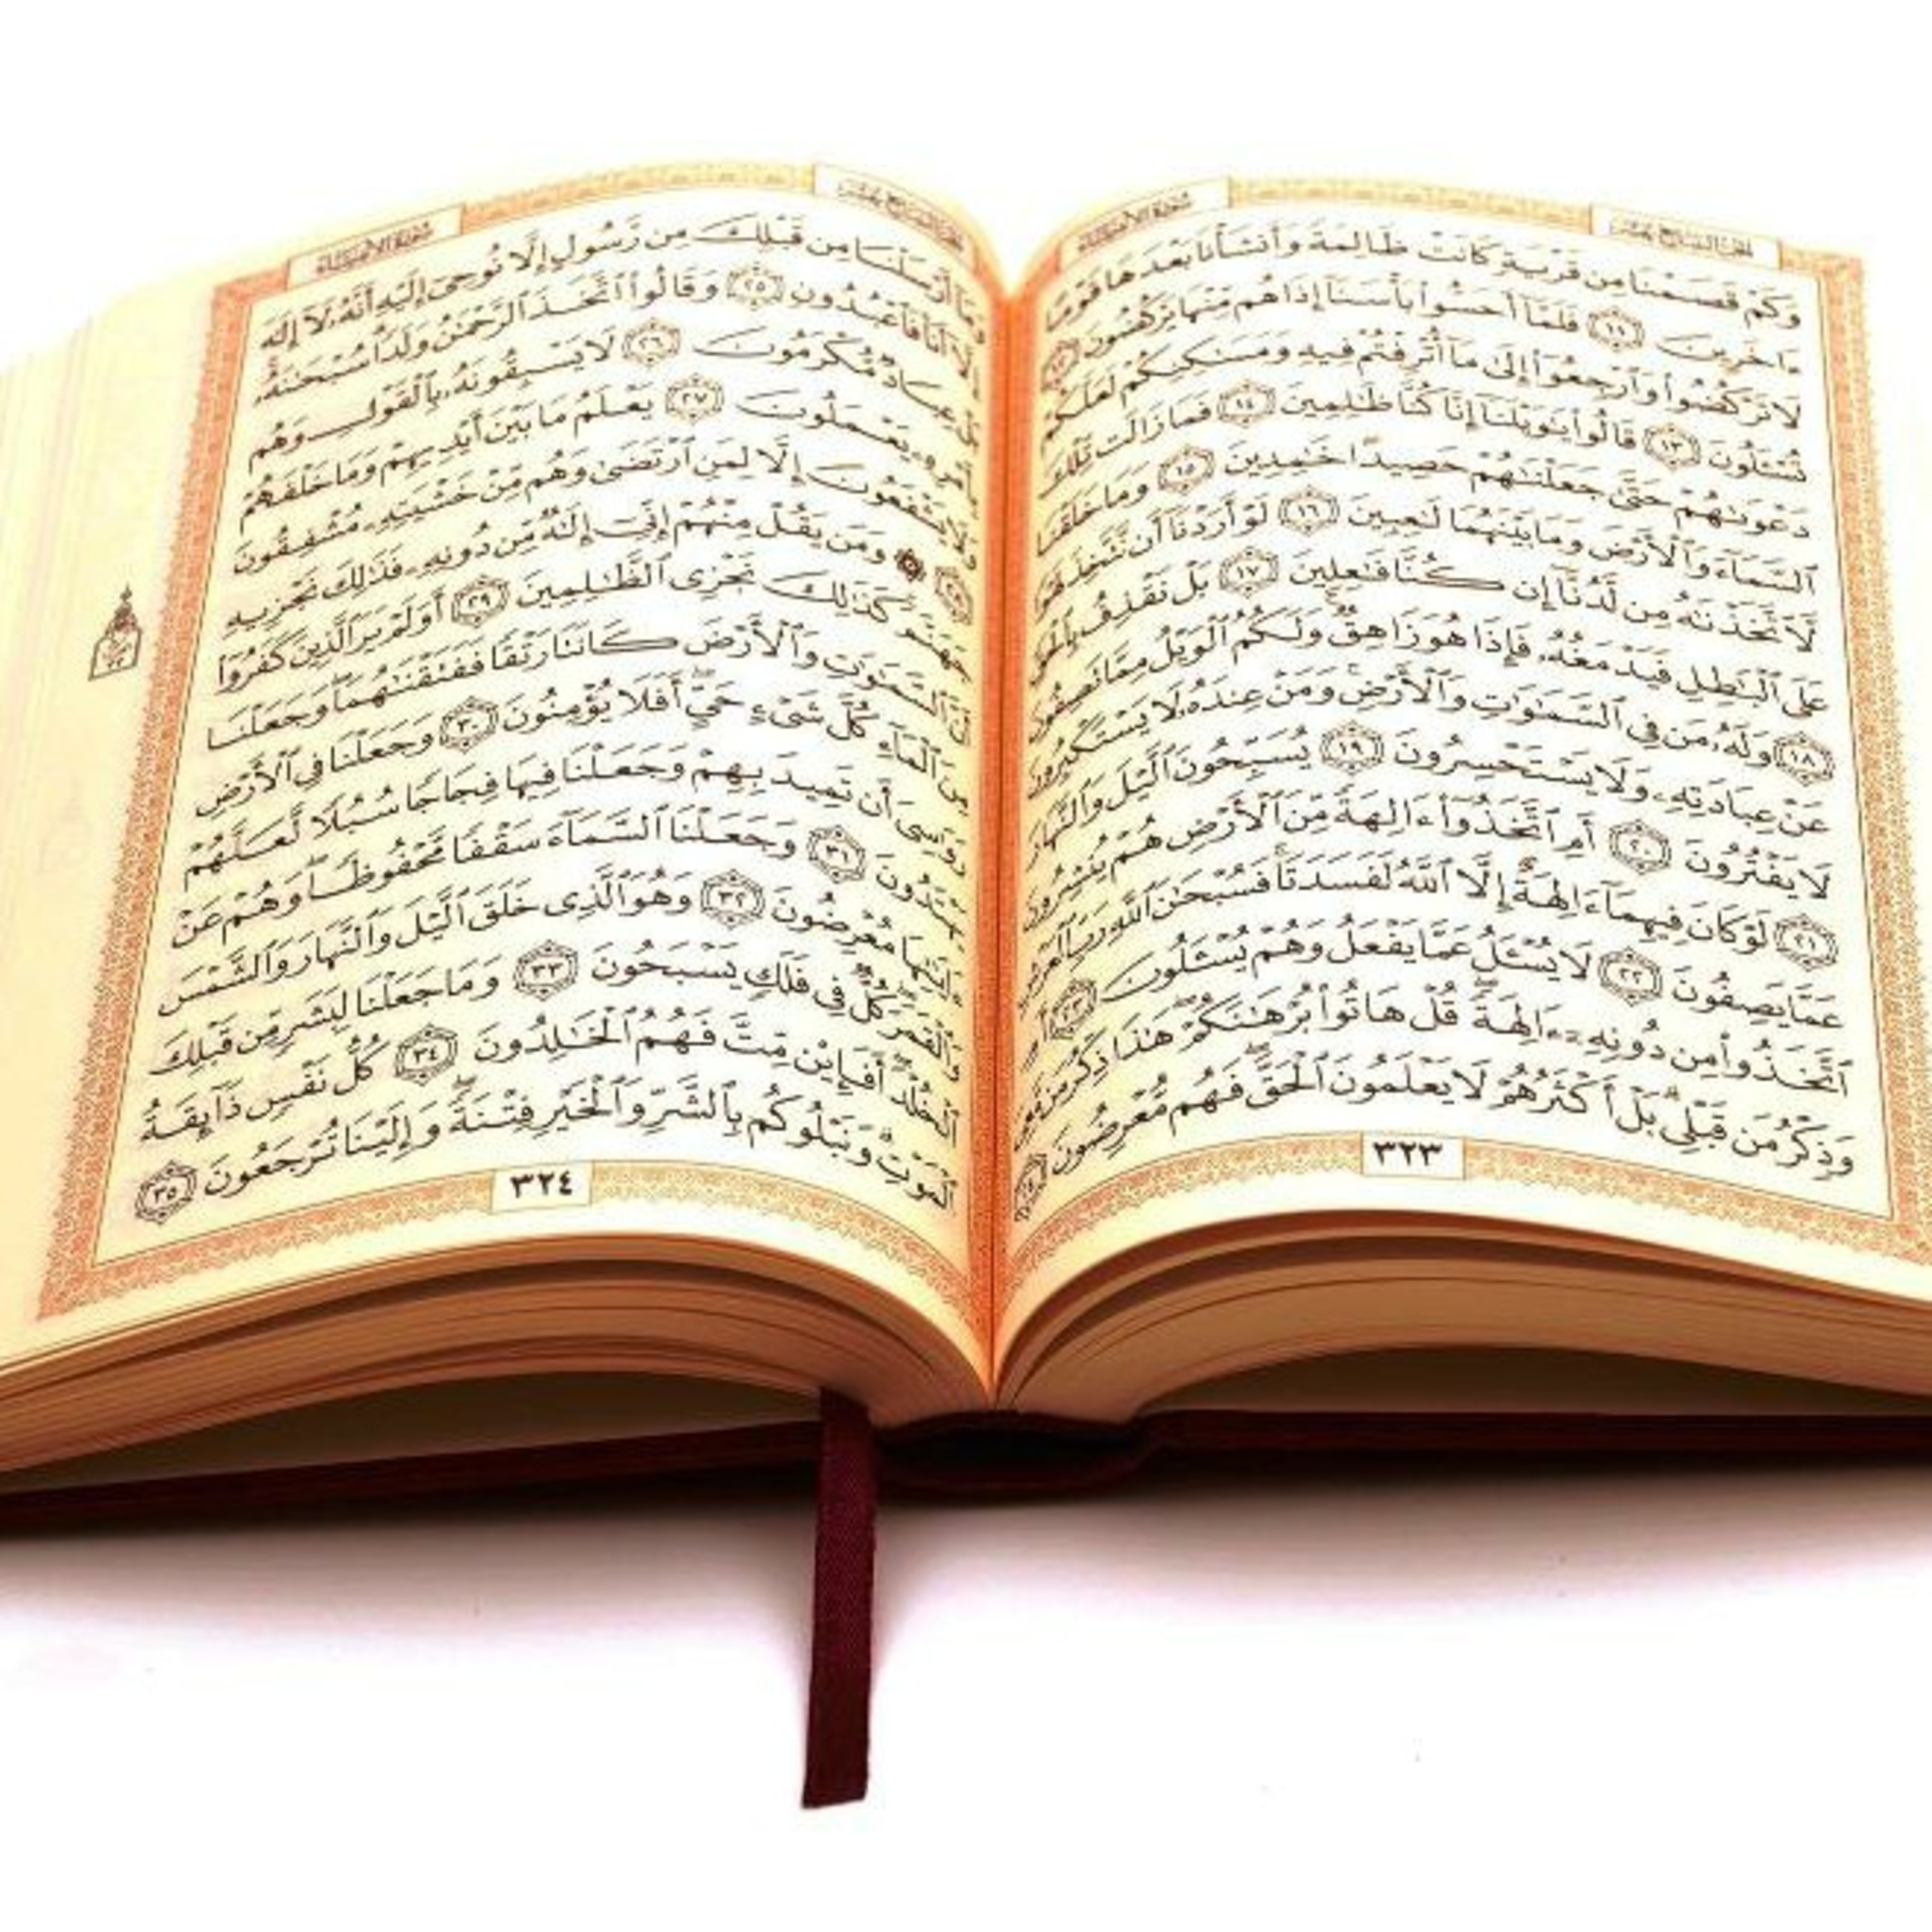 سورة الأنبياء
الجزء السابع عشر
وَكَمْ قَصَمْنَا مِن قَرْيَةٍ كَانَتْ ظَالِمَةً وَأَنشَأْنَا بَعْدَهَا قَوْمًا
ءَاخَرِينَ ١١ فَلَمَّآ أَحَسُّوا۟ بَأْسَنَآ إِذَا هُم مِّنْهَا يَرْكُضُونَ ١٢
لَا تَرْكُضُوا۟ وَٱرْجِعُوٓا۟ إِلَىٰ مَآ أُتْرِفْتُمْ فِيهِ وَمَسَٰكِنِكُمْ لَعَلَّكُمْ
تُسْـَٔلُونَ ١٣ قَالُوا۟ يَٰوَيْلَنَآ إِنَّا كُنَّا ظَٰلِمِينَ ١٤ فَمَا زَالَت تِّلْكَ
دَعْوَىٰهُمْ حَتَّىٰ جَعَلْنَٰهُمْ حَصِيدًا خَٰمِدِينَ ١٥ وَمَا خَلَقْنَا
ٱلسَّمَآءَ وَٱلْأَرْضَ وَمَا بَيْنَهُمَا لَٰعِبِينَ ١٦ لَوْ أَرَدْنَآ أَن نَّتَّخِذَ لَهْوًا
لَّٱتَّخَذْنَٰهُ مِن لَّدُنَّآ إِن كُنَّا فَٰعِلِينَ ١٧ بَلْ نَقْذِفُ بِٱلْحَقِّ
عَلَى ٱلْبَٰطِلِ فَيَدْمَغُهُۥ فَإِذَا هُوَ زَاهِقٌ وَلَكُمُ ٱلْوَيْلُ مِمَّا تَصِفُونَ
١٨ وَلَهُۥ مَن فِى ٱلسَّمَٰوَٰتِ وَٱلْأَرْضِ وَمَنْ عِندَهُۥ لَا يَسْتَكْبِرُونَ
عَنْ عِبَادَتِهِۦ وَلَا يَسْتَحْسِرُونَ ١٩ يُسَبِّحُونَ ٱلَّيْلَ وَٱلنَّهَارَ
لَا يَفْتُرُونَ ٢٠ أَمِ ٱتَّخَذُوٓا۟ ءَالِهَةً مِّنَ ٱلْأَرْضِ هُمْ يُنشِرُونَ
٢١ لَوْ كَانَ فِيهِمَآ ءَالِهَةٌ إِلَّا ٱللَّهُ لَفَسَدَتَا فَسُبْحَٰنَ ٱللَّهِ رَبِّ ٱلْعَرْشِ
عَمَّا يَصِفُونَ ٢٢ لَا يُسْـَٔلُ عَمَّا يَفْعَلُ وَهُمْ يُسْـَٔلُونَ ٢٣ أَمِ
ٱتَّخَذُوا۟ مِن دُونِهِۦٓ ءَالِهَةً قُلْ هَاتُوا۟ بُرْهَٰنَكُمْ هَٰذَا ذِكْرُ مَن مَّعِىَ
وَذِكْرُ مَن قَبْلِى بَلْ أَكْثَرُهُمْ لَا يَعْلَمُونَ ٱلْحَقَّ فَهُم مُّعْرِضُونَ ٢٤
٣٢٣
الجزء السابع عشر
سورة الأنبياء
وَمَآ أَرْسَلْنَا مِن قَبْلِكَ مِن رَّسُولٍ إِلَّا نُوحِىٓ إِلَيْهِ أَنَّهُۥ لَآ إِلَٰهَ
إِلَّآ أَنَا۠ فَٱعْبُدُونِ ٢٥ وَقَالُوا۟ ٱتَّخَذَ ٱلرَّحْمَٰنُ وَلَدًا سُبْحَٰنَهُۥ
بَلْ عِبَادٌ مُّكْرَمُونَ ٢٦ لَا يَسْبِقُونَهُۥ بِٱلْقَوْلِ وَهُم
بِأَمْرِهِۦ يَعْمَلُونَ ٢٧ يَعْلَمُ مَا بَيْنَ أَيْدِيهِمْ وَمَا خَلْفَهُمْ
وَلَا يَشْفَعُونَ إِلَّا لِمَنِ ٱرْتَضَىٰ وَهُم مِّنْ خَشْيَتِهِۦ مُشْفِقُونَ
٢٨ وَمَن يَقُلْ مِنْهُمْ إِنِّىٓ إِلَٰهٌ مِّن دُونِهِۦ فَذَٰلِكَ نَجْزِيهِ
جَهَنَّمَ كَذَٰلِكَ نَجْزِى ٱلظَّٰلِمِينَ ٢٩ أَوَلَمْ يَرَ ٱلَّذِينَ كَفَرُوٓا۟
أَنَّ ٱلسَّمَٰوَٰتِ وَٱلْأَرْضَ كَانَتَا رَتْقًا فَفَتَقْنَٰهُمَا وَجَعَلْنَا
مِنَ ٱلْمَآءِ كُلَّ شَىْءٍ حَىٍّ أَفَلَا يُؤْمِنُونَ ٣٠ وَجَعَلْنَا فِى ٱلْأَرْضِ
رَوَٰسِىَ أَن تَمِيدَ بِهِمْ وَجَعَلْنَا فِيهَا فِجَاجًا سُبُلًا لَّعَلَّهُمْ
يَهْتَدُونَ ٣١ وَجَعَلْنَا ٱلسَّمَآءَ سَقْفًا مَّحْفُوظًا وَهُمْ عَنْ
ءَايَٰتِهَا مُعْرِضُونَ ٣٢ وَهُوَ ٱلَّذِى خَلَقَ ٱلَّيْلَ وَٱلنَّهَارَ وَٱلشَّمْسَ
وَٱلْقَمَرَ كُلٌّ فِى فَلَكٍ يَسْبَحُونَ ٣٣ وَمَا جَعَلْنَا لِبَشَرٍ مِّن قَبْلِكَ
ٱلْخُلْدَ أَفَإِي۟ن مِّتَّ فَهُمُ ٱلْخَٰلِدُونَ ٣٤ كُلُّ نَفْسٍ ذَآئِقَةُ
ٱلْمَوْتِ وَنَبْلُوكُم بِٱلشَّرِّ وَٱلْخَيْرِ فِتْنَةً وَإِلَيْنَا تُرْجَعُونَ ٣٥
٣٢٤